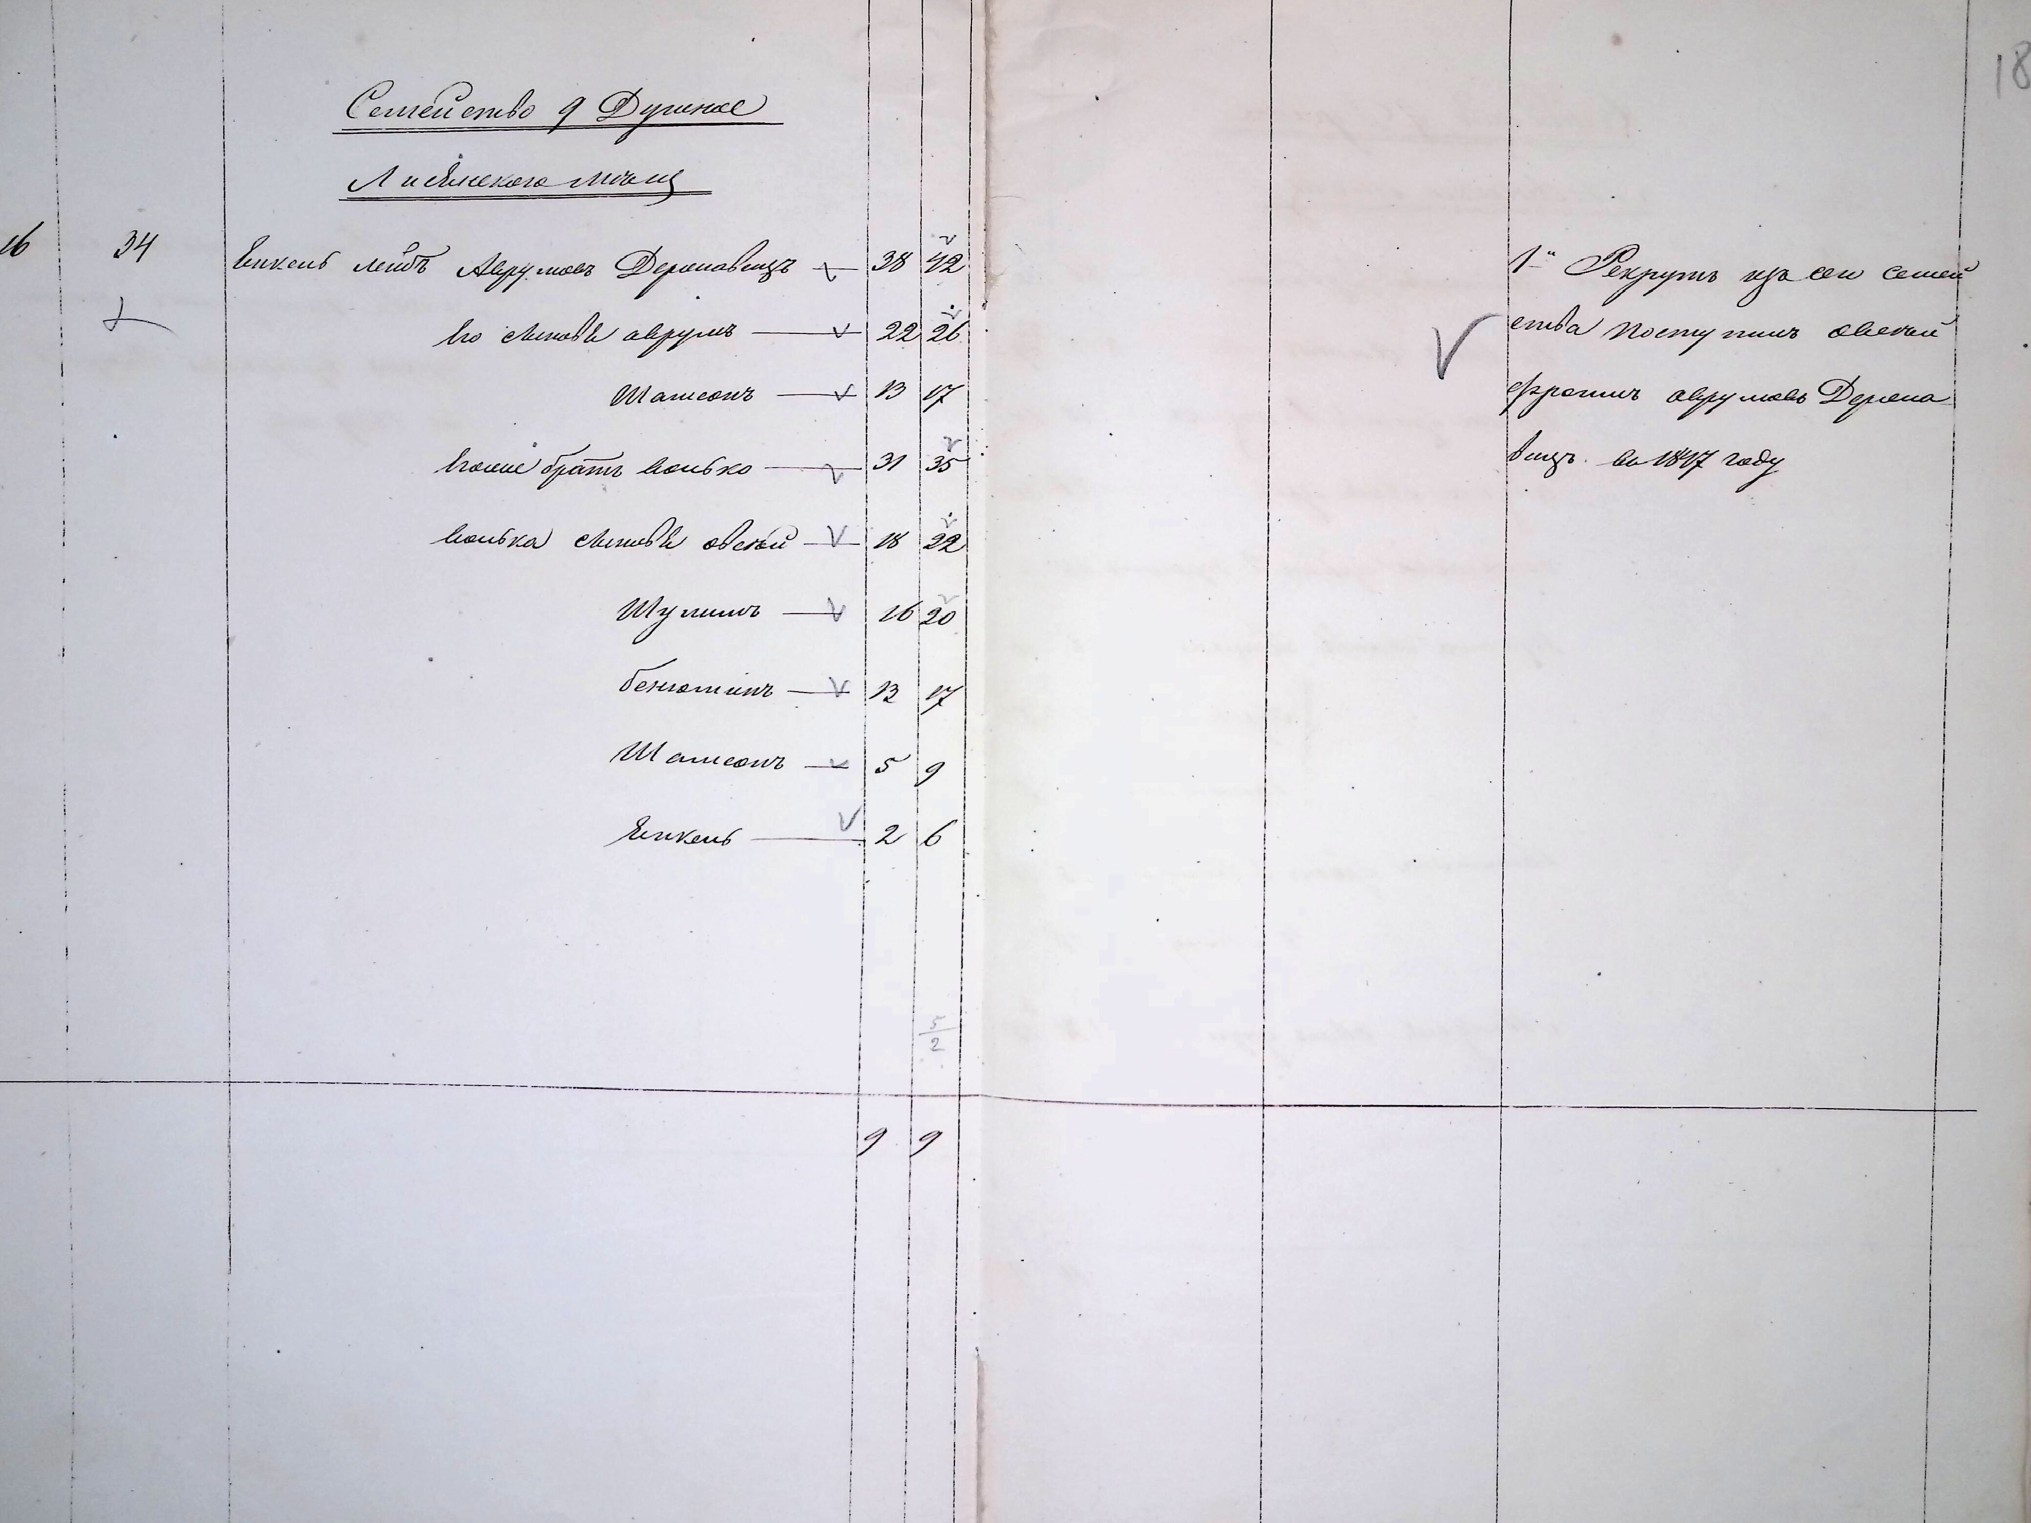 18
Семейство 9 Душное
Лисянского мѣщ
16 34 Янкель лейбъ Аврумовъ Дер 38 42
Его сыновья аврумъ 22 26
Шамсонъ 13 17
братъ волько 31 35
волька сыновья овсей 18 22
Шулимъ 16 20
бенюминъ 13 17
Шамсонъ 5 9
Янкель 2 6
5
2
9 9
1й Рекрутъ изъ сей семей
ства поступилъ овсей
фроимъ аврумовъ
вицъ. въ 1847 году